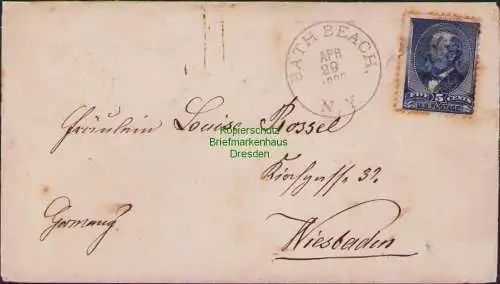 BATH BEACH,
APR
29
N.Y.
FIVE 5 CENTS
U.S. POSTAGE
Fräulein Louise Rossel
Kopierschutz
Briefmarkenhaus
Dresden
Kirchgasse 32.
Germany
Wiesbaden